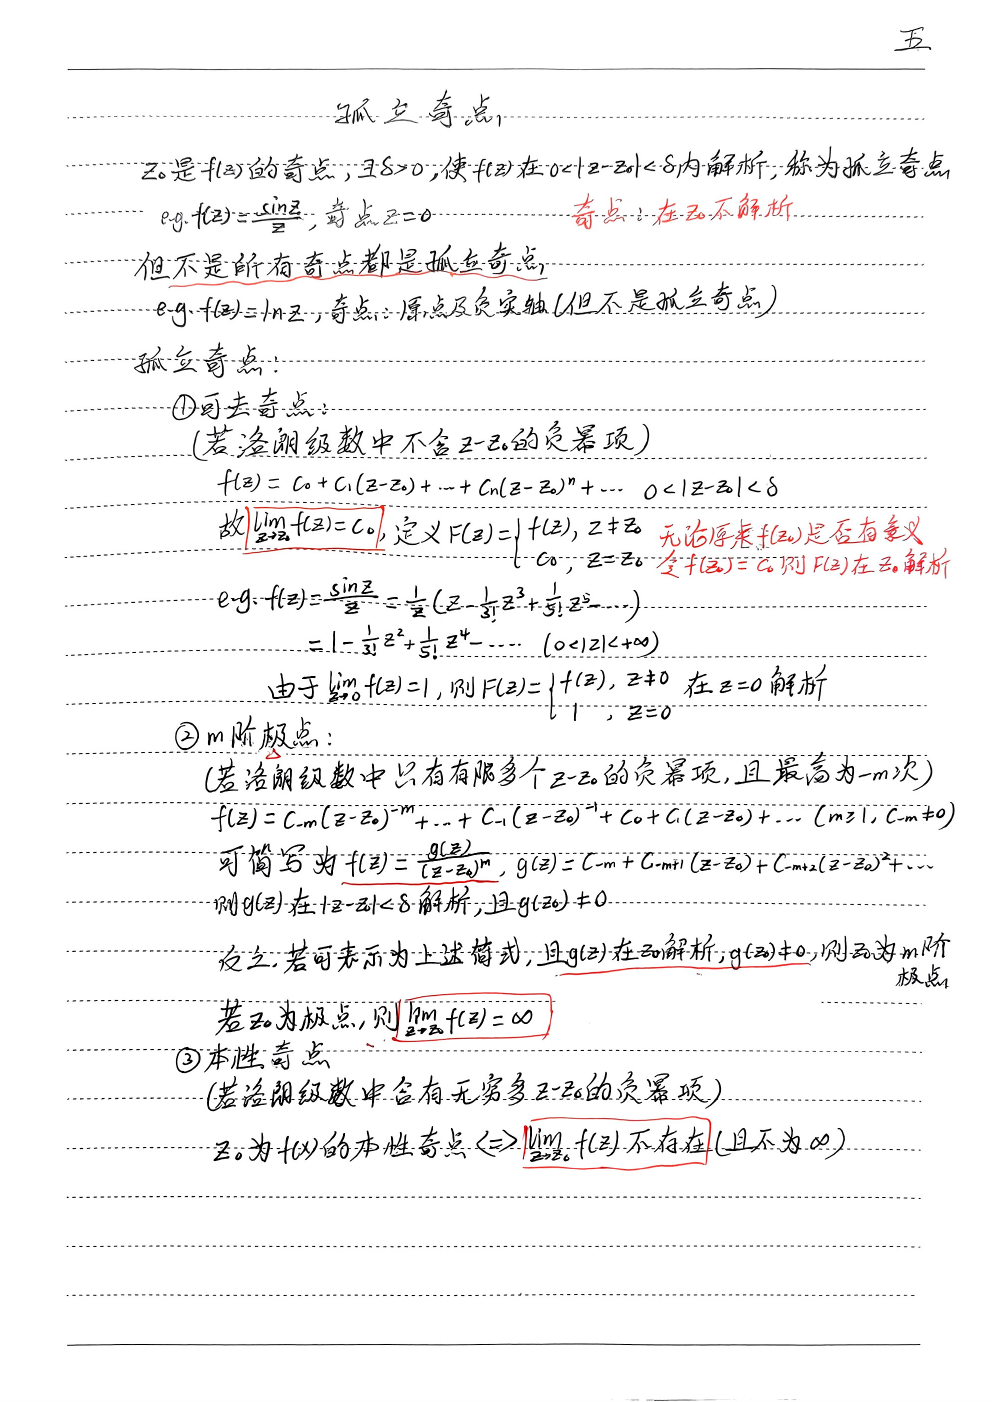 五
孤立奇点
z₀是f(z)的奇点,∃δ>0,使f(z)在0<|z-z₀|<δ内解析,称为孤立奇点
e.g. f(z)=sinz/z,奇点z=0 奇点:在z₀不解析
但不是所有奇点都是孤立奇点
e.g. f(z)=lnz,奇点:原点及负实轴(但不是孤立奇点)
孤立奇点:
①可去奇点:
(若洛朗级数中不含z-z₀的负幂项)
f(z)=c₀+c₁(z-z₀)+…+cₙ(z-z₀)ⁿ+… 0<|z-z₀|<δ
故 lim_{z→z₀} f(z)=c₀,定义F(z)={f(z), z≠z₀ 无论原来f(z₀)是否有意义
c₀, z=z₀ 令f(z₀)=c₀则F(z)在z₀解析
e.g. f(z)=sinz/z=1/z(z-1/3! z³+1/5! z⁵-…)
=1-1/3! z²+1/5! z⁴-…. (0<|z|<+∞)
由于 lim_{z→0} f(z)=1,则F(z)={f(z), z≠0 在z=0解析
1, z=0
②m阶极点:
(若洛朗级数中只有有限多个z-z₀的负幂项,且最高为-m次)
f(z)=c₋ₘ(z-z₀)⁻ᵐ+…+c₋₁(z-z₀)⁻¹+c₀+c₁(z-z₀)+… (m≥1, c₋ₘ≠0)
可简写为f(z)=g(z)/(z-z₀)ᵐ, g(z)=c₋ₘ+c₋ₘ₊₁(z-z₀)+c₋ₘ₊₂(z-z₀)²+…
则g(z)在|z-z₀|<δ解析,且g(z₀)≠0
反之,若可表示为上述简式,且g(z)在z₀解析,g(z₀)≠0,则z₀为m阶
极点
若z₀为极点,则 lim_{z→z₀} f(z)=∞
③本性奇点
(若洛朗级数中含有无穷多z-z₀的负幂项)
z₀为f(x)的本性奇点<=> lim_{z→z₀} f(z)不存在(且不为∞)